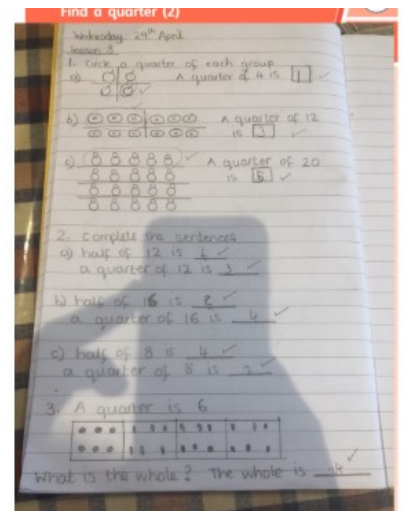 Find a quarter (2)
Wednesday 29th April
Lesson 3
1. Circle a quarter of each group
a) A quarter of 4 is 1
b) A quarter of 12
is 3
c) A quarter of 20
is 5
2. Complete the sentences
a) half of 12 is 6
a quarter of 12 is 3
b) half of 16 is 8
a quarter of 16 is 4
c) half of 8 is 4
a quarter of 8 is 2
3. A quarter is 6
What is the whole? The whole is 24